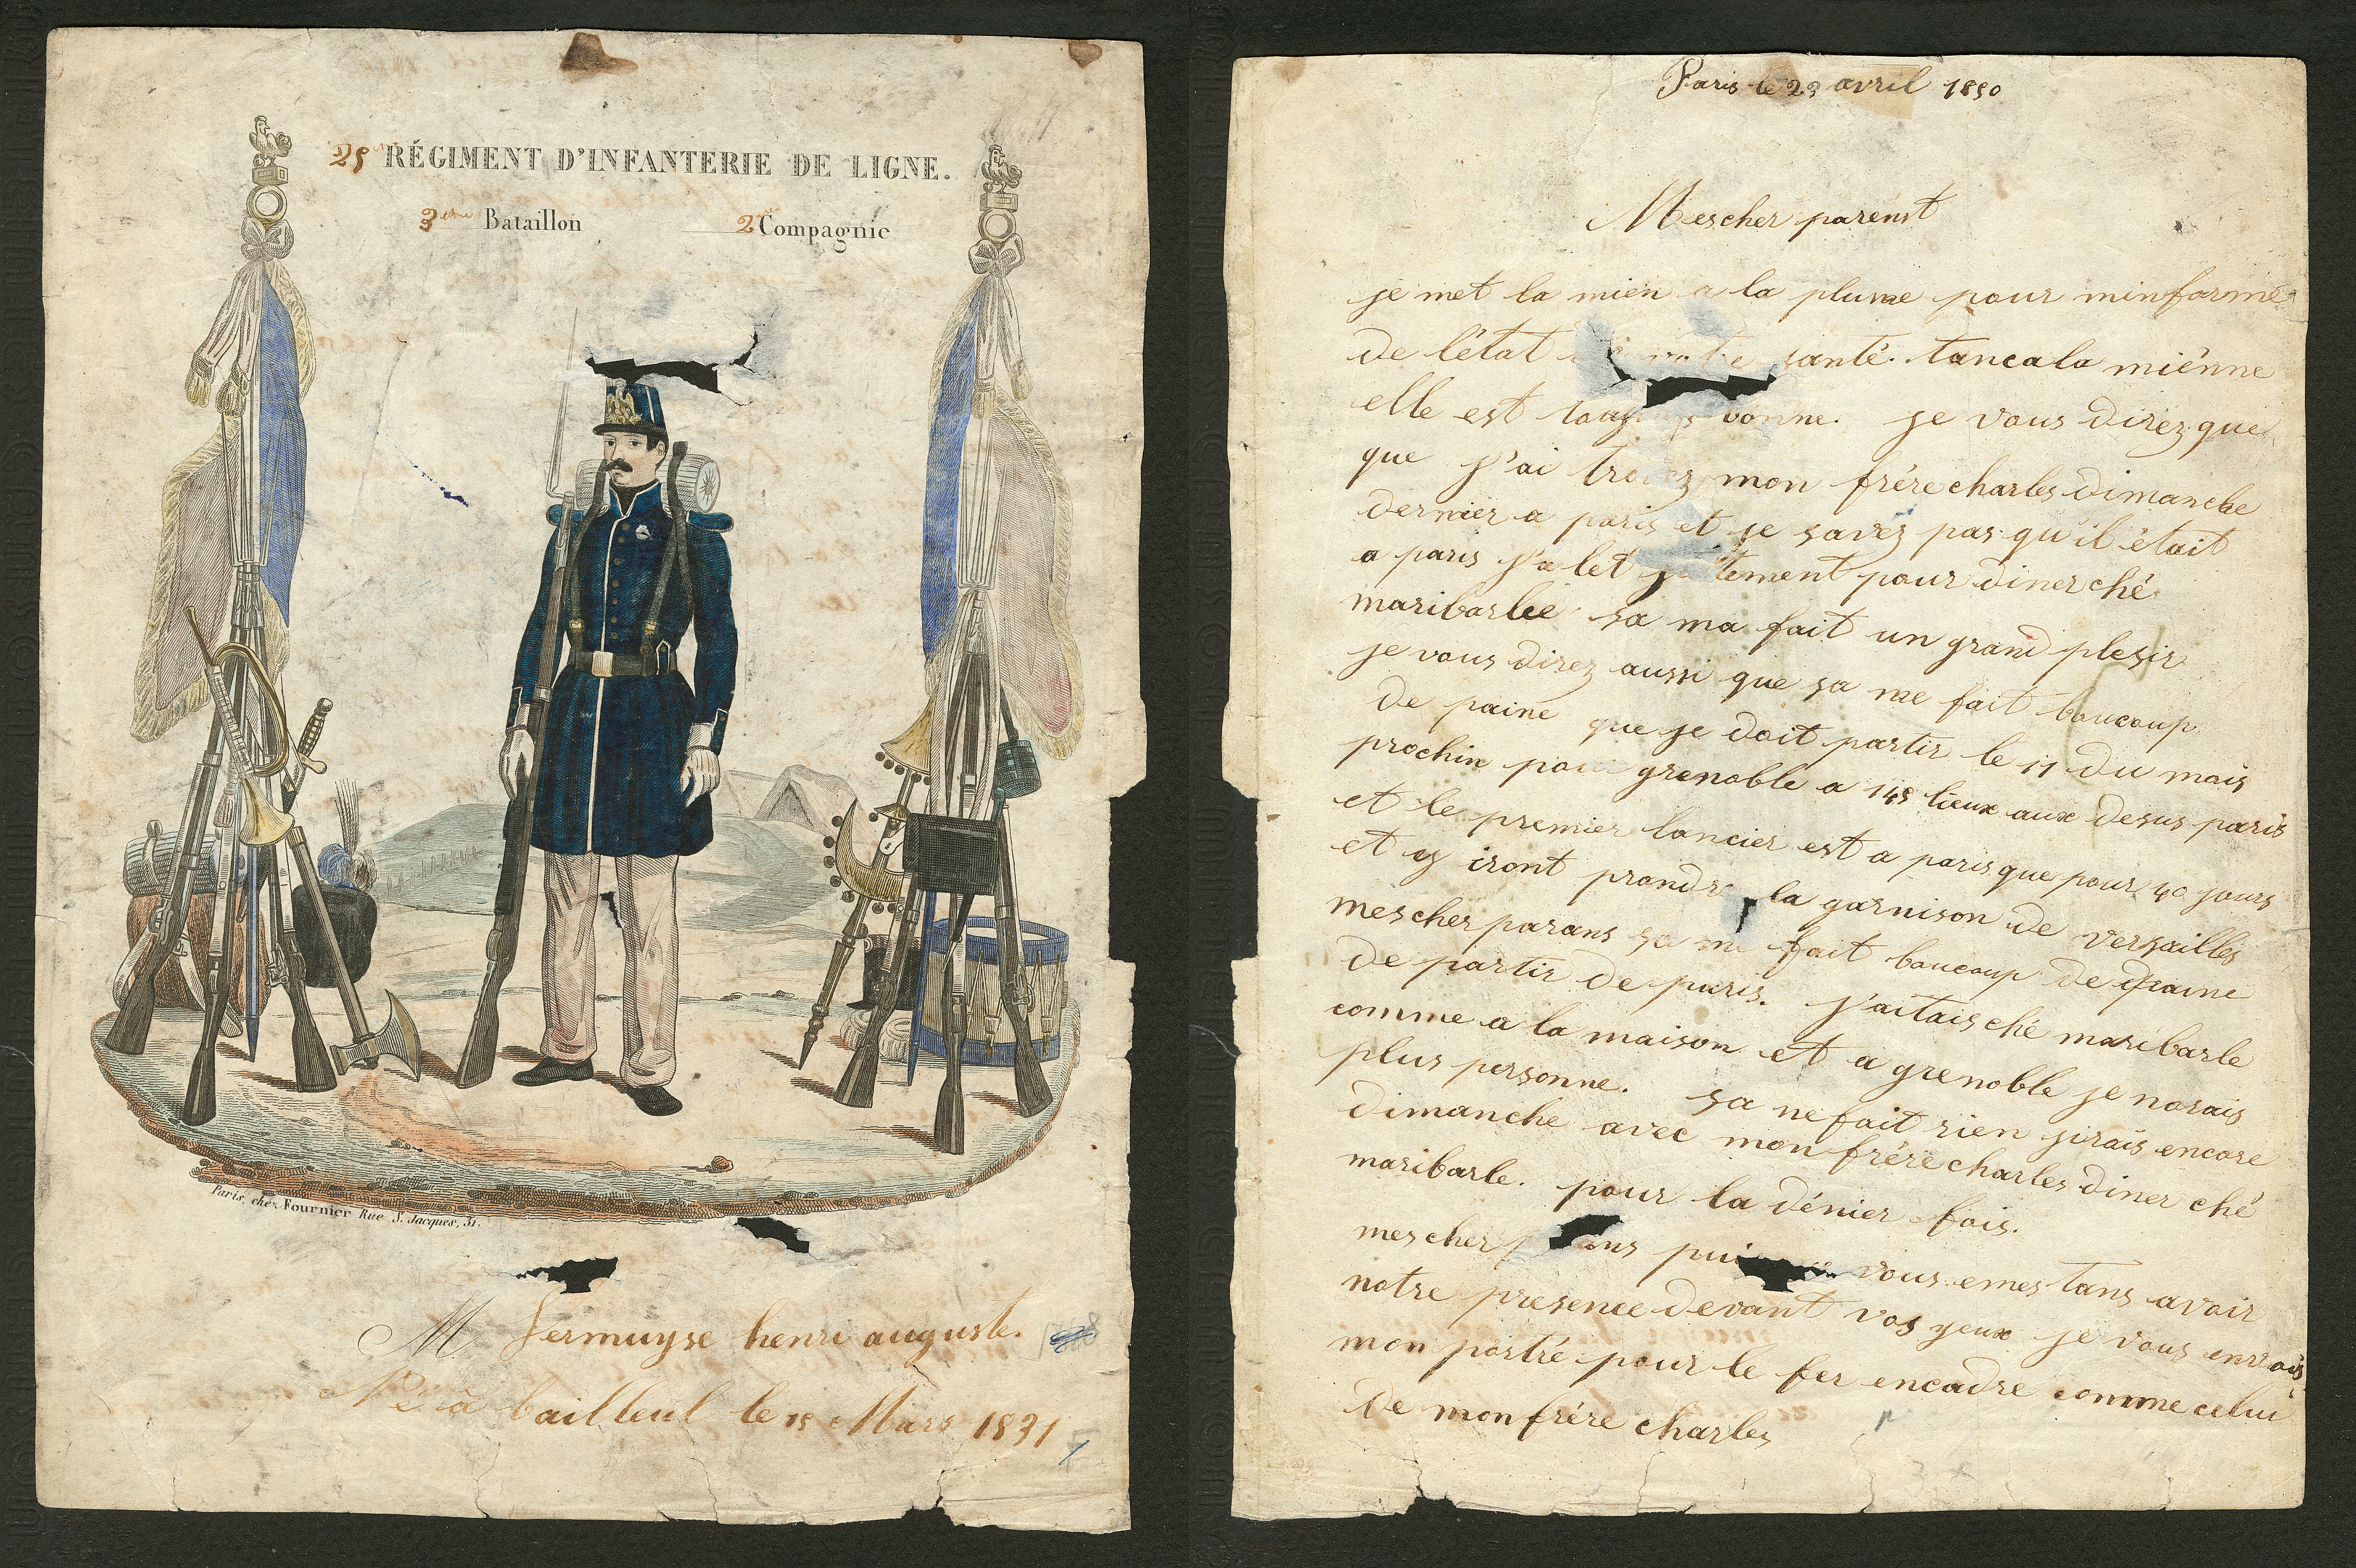 25 RÉGIMENT D'INFANTERIE DE LIGNE.
3eme Bataillon 2me Compagnie
Paris, chez Fournier Rue S. Jacques, 31.
M Vermuyse henri auguste.
Né à bailleul le 15 Mars 1831
Paris le 23 avril 1850
Mescher parent
je met la mien a la plume pour minformé
de l'état votre santé. tancala miénne
elle est bonne. je vous direz que
que j'ai trouvez mon frére charles dimanche
dernier a paris et je savez pas qu'il était
a paris j'a let justement pour diner ché
maribarlee sa ma fait un grand plesir
je vous direz aussi que sa me fait boucoup
de paine que je doit partir le 11 du mais
prochin pour grenoble a 145 lieux aux desus paris
et le premier lancier est a paris que pour 40 jours
et y iront prandre la garnison de versailles
mescher parans sa me fait boucoup de paine
de partir de paris. j'aitais ché maribarle
comme a la maison et a grenoble je norais
plus personne. sa ne fait rien jirais encore
dimanche avec mon frére charles diner ché
maribarle. pour la dénier fois.
mescher vous emes tans avoir
notre presence devant vos yeux je vous envrais
mon portré pour le fer encadre comme celui
de mon frére charles